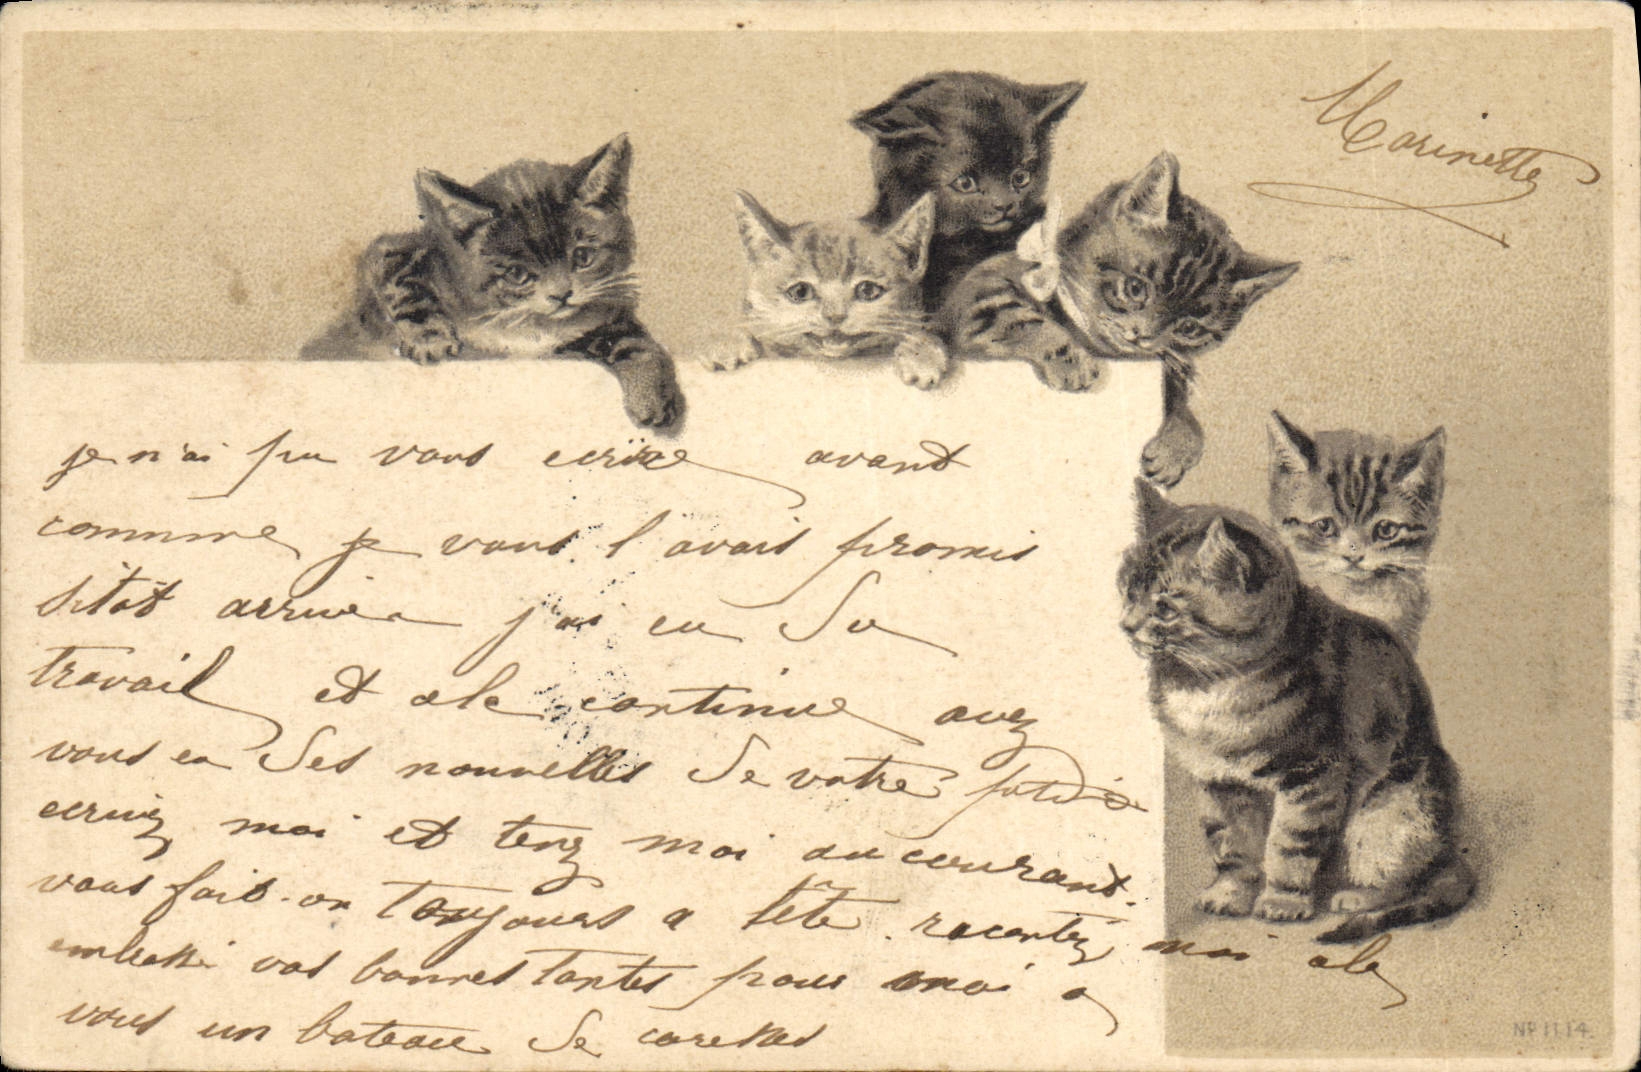 Marinette
je n'ai pu vous ecrire avant
comme je vous l'avais promis
sitot arrivée j'ai eu du
travail et cela continue avez
vous eu des nouvelles de votre
ecrivez moi et tenez moi au courant.
vous fait-on toujours la tête. racontez moi cela
embrassez vos bonnes tantes pour moi a
vous un bateau de caresses
No 1114.